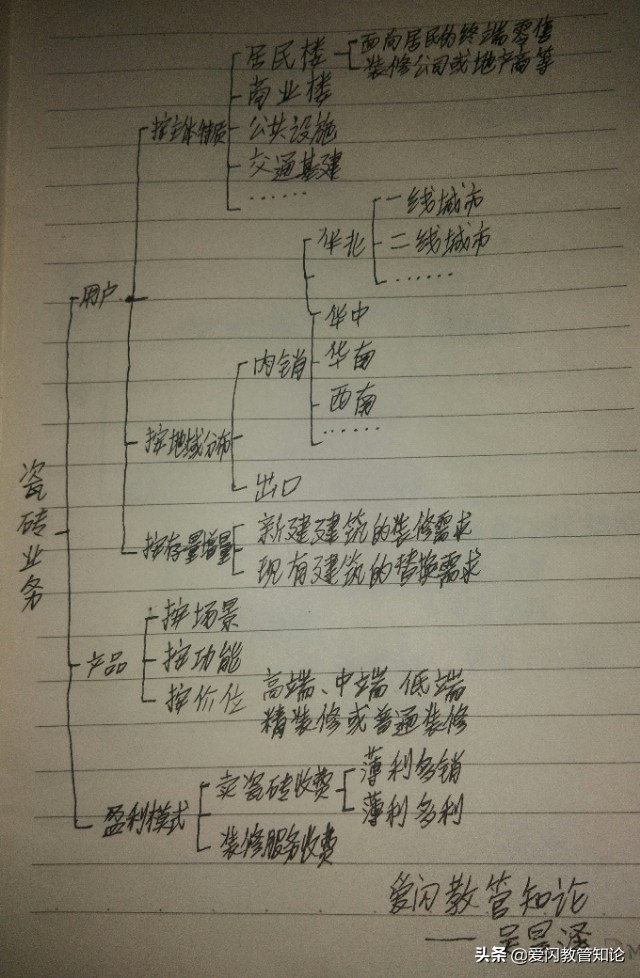 瓷砖业务
用户
按主体特质
居民楼
面向居民的终端零售
装修公司或地产商等
商业楼
公共设施
交通基建
......
按地域分布
内销
华北
一线城市
二线城市
......
华中
华南
西南
......
出口
按存量增量
新建建筑的装修需求
现有建筑的替换需求
产品
按场景
按功能
按价位
高端、中端 低端
精装修或普通装修
盈利模式
卖瓷砖收费
薄利多销
薄利多利
装修服务收费
爱闪教管知论
——吴昊泽
头条 @爱闪教管知论